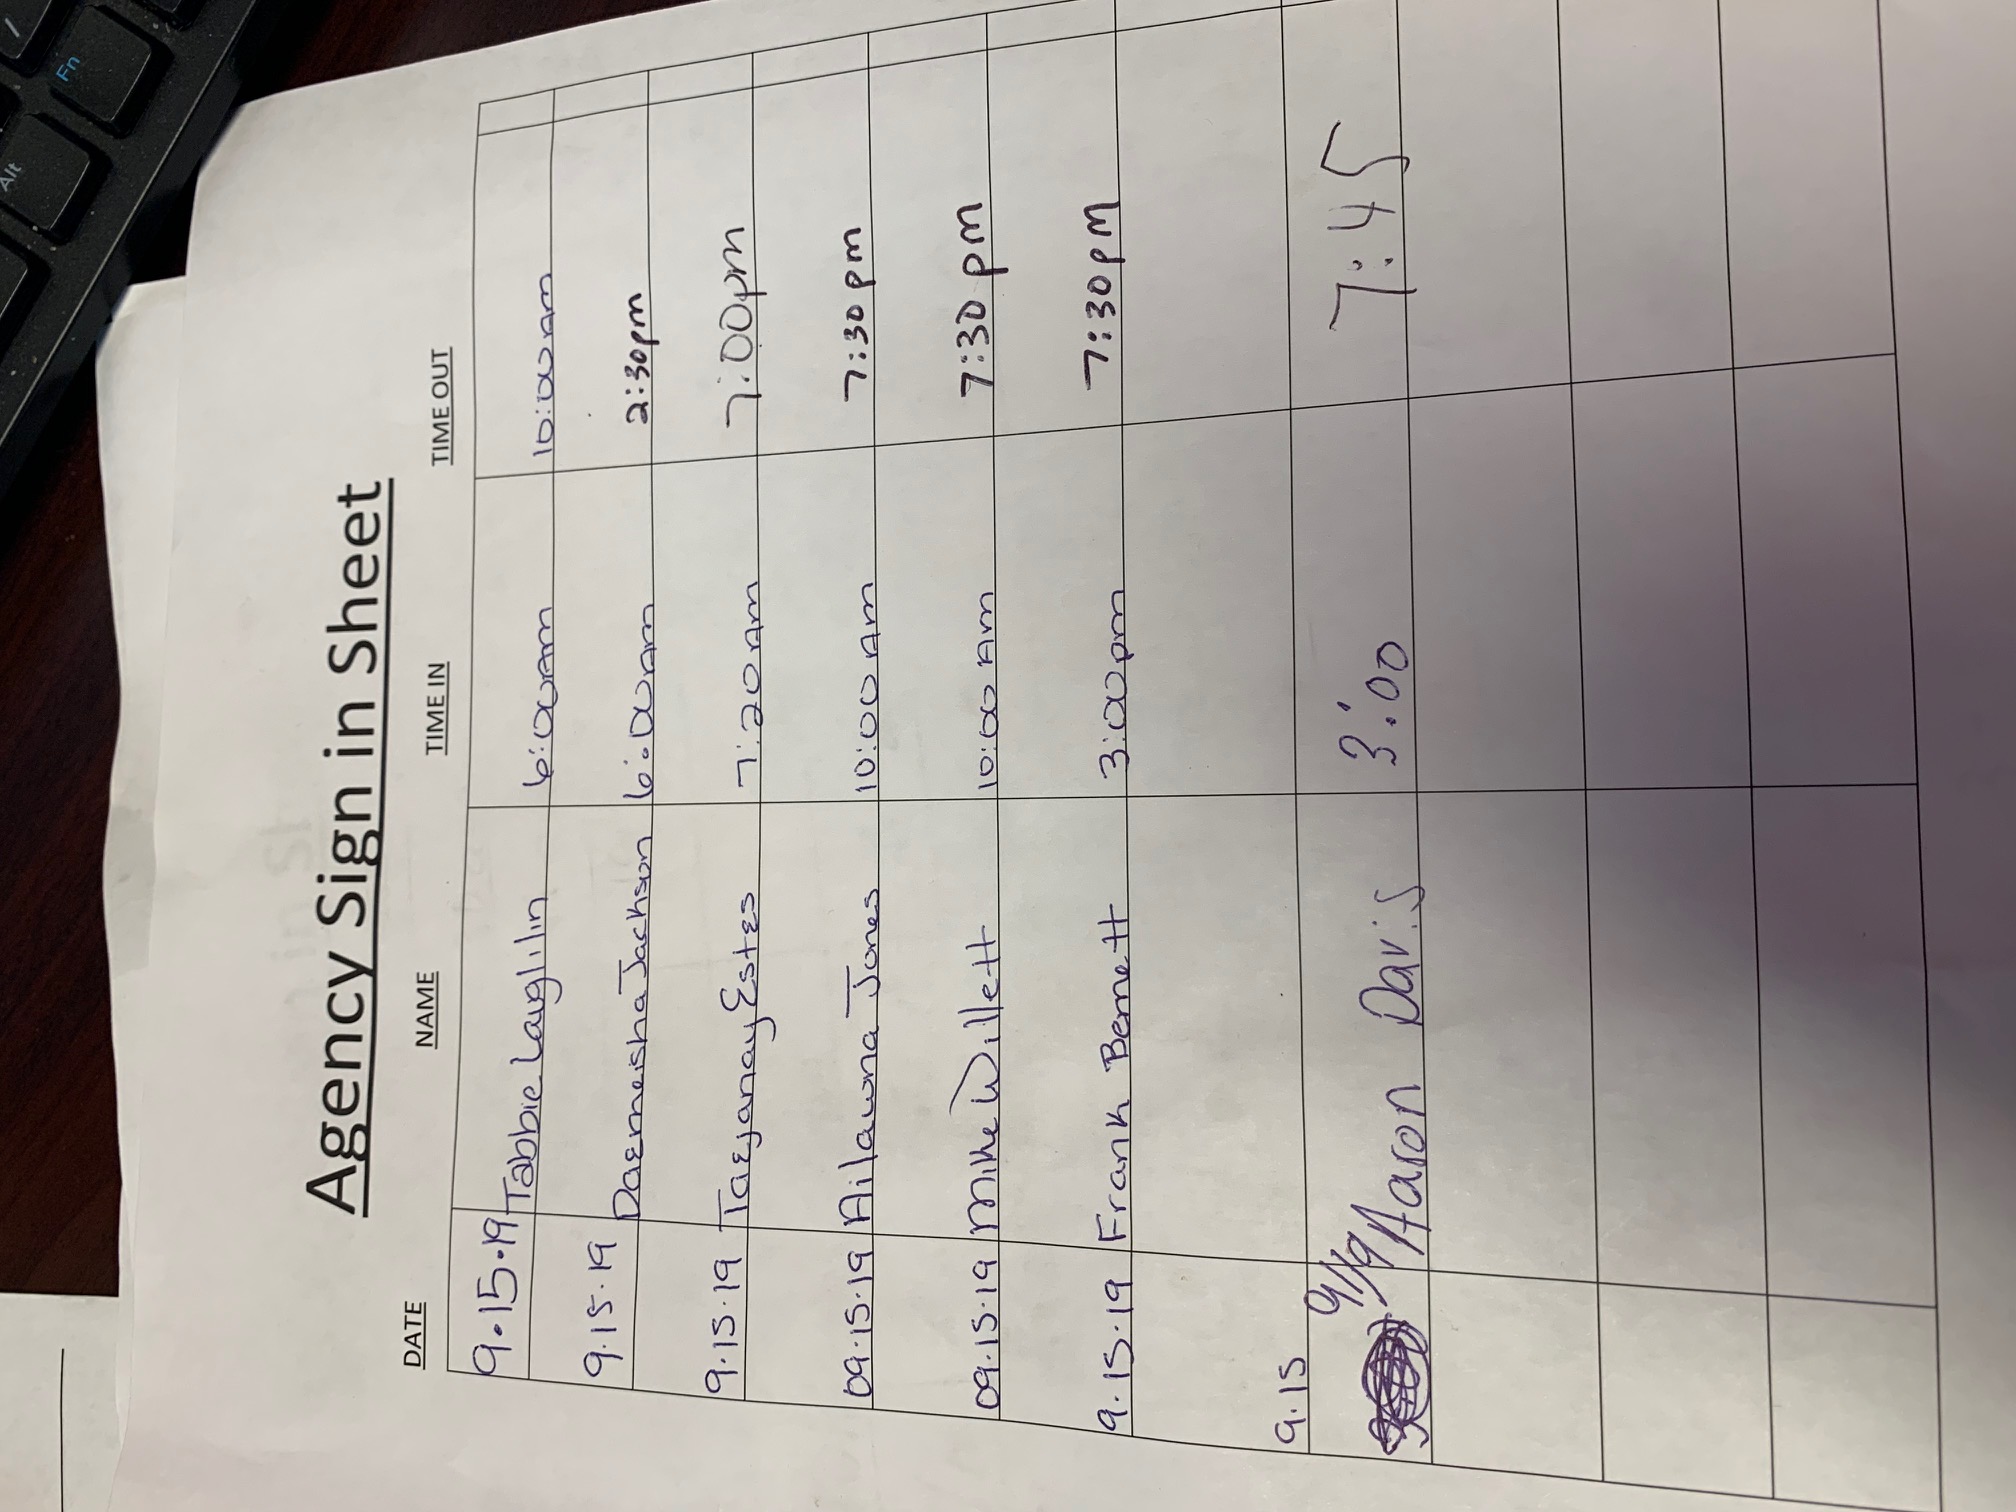 Fn
Alt
/
Agency Sign in Sheet
DATE NAME TIME IN TIME OUT
9.15.19 Tabbie Lauglilin 6:00Am 10:00Am
9.15.19 Daemeisha Jackson 6:00Am 2:30pm
9.15.19 Taejanay Estes 7:20Am 7:00pm
09.15.19 Ailawna Jones 10:00Am 7:30pm
09.15.19 Mike Willett 10:00Am 7:30pm
9.15.19 Frank Bennett 3:00pm 7:30pm
9.15
Aaron Davis 3:00 7:45